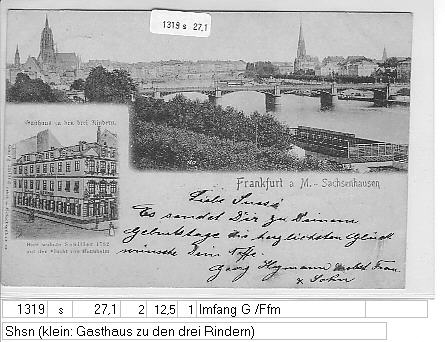 1319 s 27,1
Gasthaus zu den drei Rindern.
Frankfurt a M. - Sachsenhausen
Hier wohnte Schiller 1782
auf der Flucht von Mannheim
Liebe Susi!
Es sendet Dir zu Deinem
Geburtstage die herzlichsten Glück
wünsche Dein Neffe
Georg Hegmann nebst Frau
u. Sohn
1319 s 27,1 2 12,5 1 Imfang G /Ffm
Shsn (klein: Gasthaus zu den drei Rindern)